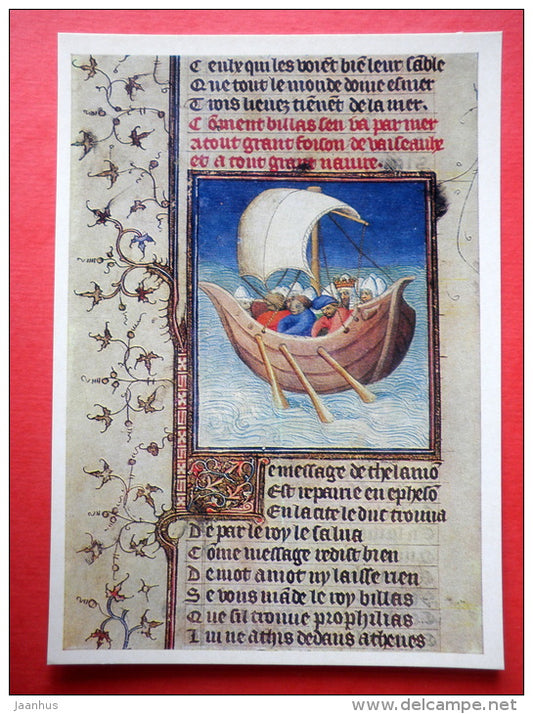 Ceuly qui les voient biē leur sāble
Que tout le monde doiue esmer
Trois lieuez tiēnēt de la mer.
Cōment billas sen va par mer
a tout grant foison de vaisseaulx
et a tout grant nauire.
Le message de thelamō
Est repairie en ephesō
En la cite le duc trouua
De par le roy le salua
Cōme message redist bien
De mot a mot ny laisse rien
Se vous māde le roy billas
Que sil trouue prophilias
Lui ne athis dedans athenes
Jaanhus
www.delcampe.net